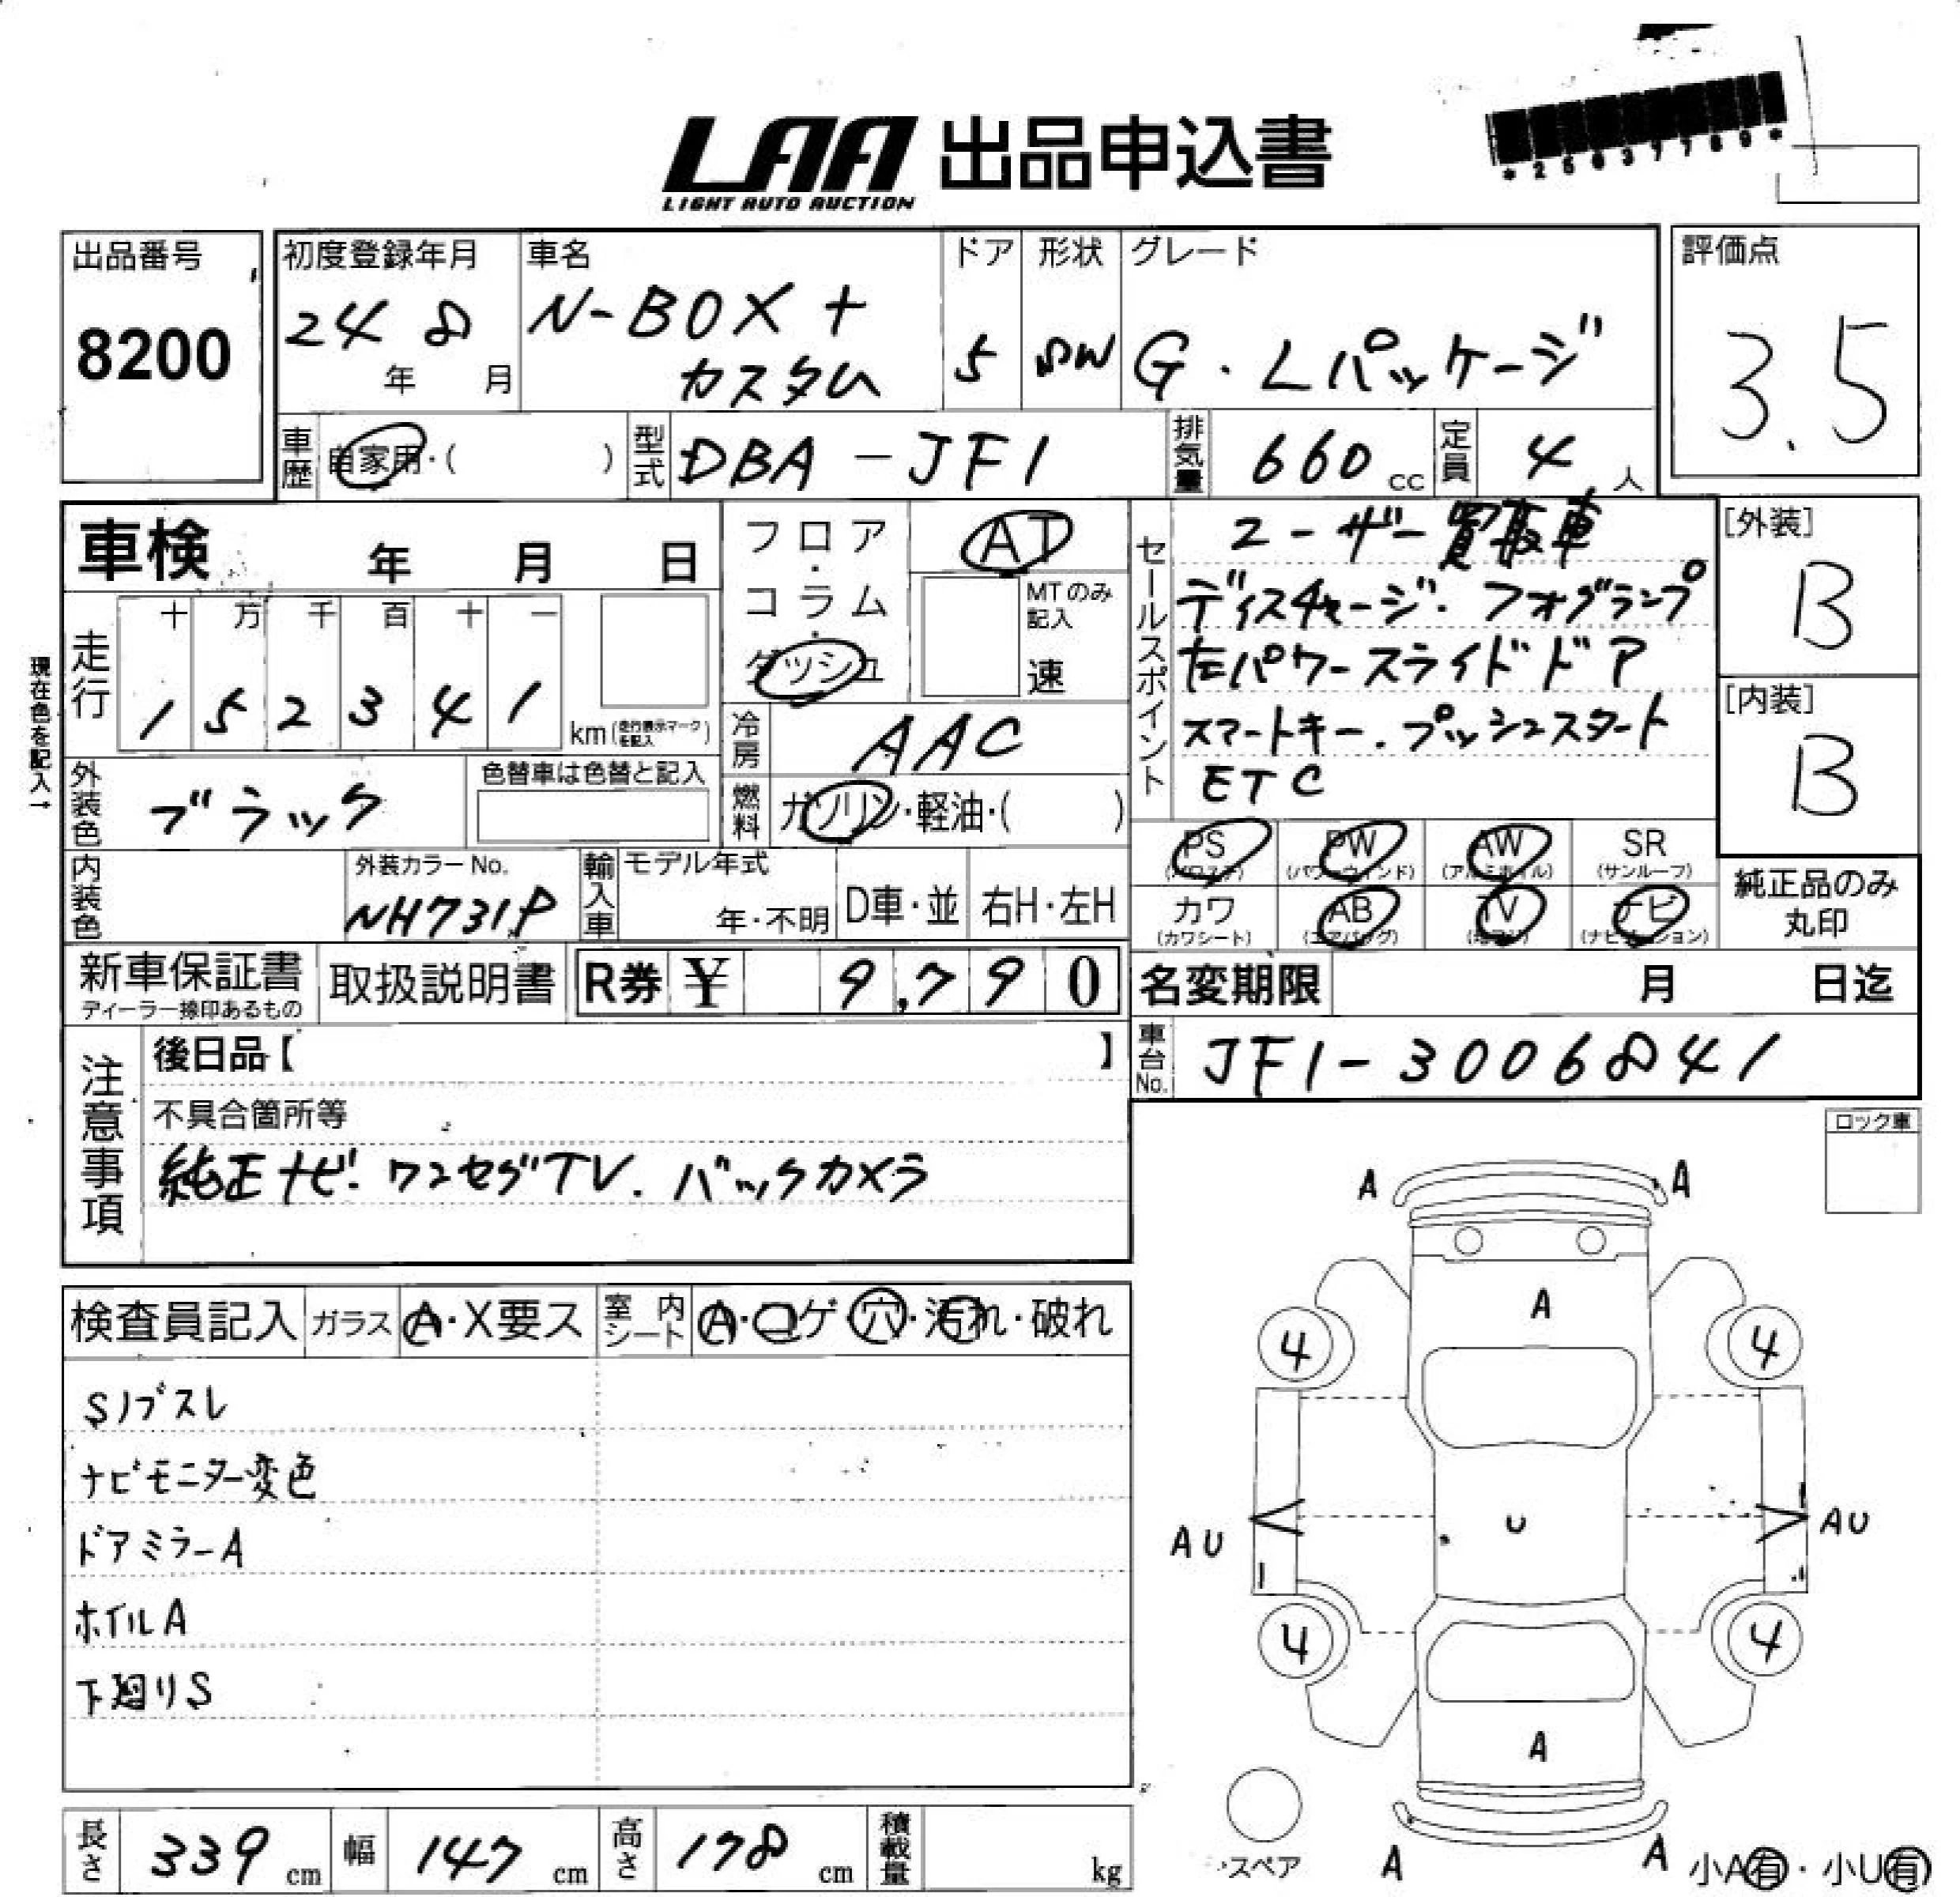 LAA 出品申込書
LIGHT AUTO AUCTION
*25037789*
出品番号
8200
初度登録年月
24 年 8 月
車名
N-BOX+
カスタム
ドア
5
形状
SW
グレード
G・Lパッケージ
評価点
3.5
車歴 自家用・( )
型式 DBA-JF1
排気量 660 cc
定員 4 人
車検 年 月 日
フロア・コラム・ダッシュ
AT
MTのみ記入
速
セールスポイント
ユーザー買取車
ディスチャージ・フォグランプ
左パワースライドドア
スマートキー・プッシュスタート
ETC
[外装]
B
[内装]
B
現在色を記入→
走行
十 万 千 百 十 一
1 5 2 3 4 1 km (走行表示マークを記入)
冷房 AAC
外装色 ブラック
色替車は色替と記入
燃料 ガソリン・軽油・( )
PS (パワステ)
PW (パワーウィンド)
AW (アルミホイル)
SR (サンルーフ)
カワ (カワシート)
AB (エアバッグ)
TV
ナビ (ナビゲーション)
純正品のみ
丸印
内装色
外装カラーNo.
NH731P
輸入車
モデル年式
年・不明
D車・並
右H・左H
新車保証書
ディーラー捺印あるもの
取扱説明書
R券 ¥ 9,790
名変期限 月 日迄
車台No. JF1-3006841
注意事項
後日品【 】
不具合箇所等
純正ナビ・ワンセグTV・バックカメラ
ロック車
A A
A
4 4
AU U AU
4 4
A
A A
スペア
小A有・小U有
検査員記入
ガラス A・X要ス
室内シート A・コゲ・穴・汚れ・破れ
Sノブスレ
ナビモニター変色
ドアミラーA
ホイルA
下廻りS
長さ 339 cm
幅 147 cm
高さ 178 cm
積載量 kg